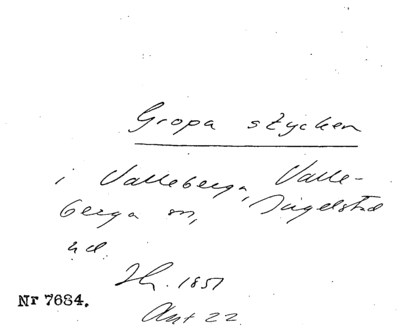 Gropa stycken
i Valleberga, Valle-
berga sn, Ingelstad
hd.
Ih. 1851
Akt 22
Nr 7684.